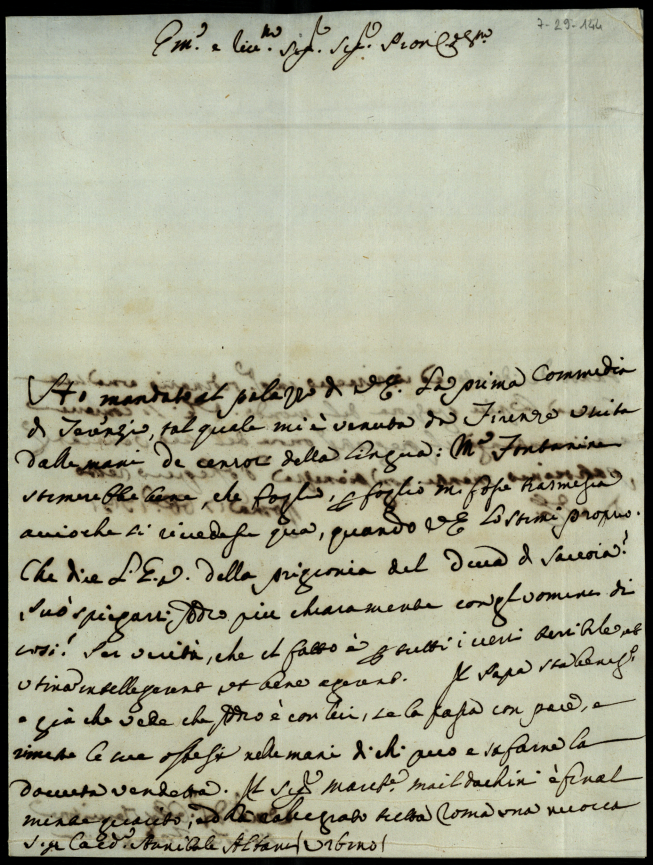 7-29-144
Em.º e Rev.mo Sig.r Sig.r Pron Col.mo
Ho mandato al palazzo di V.E. La prima Commedia
di Terenzio, tal quale mi è venuta da Firenze uscita
dalle mani de censori della lingua: M.r Fontanini
stimerebbe bene, che foglio, p foglio mi fosse trasmessa
accioche si rivedesse qua, quando V.E. lo stimi proprio.
Che dice L'E.V. della prigionia del Duca di Savoia?
Può spiegarsi Iddio più chiaramente con gl'uomini di
così? Per verità, che il fatto è p tutti i versi terribile, et
utinam intellegerent, ut bene agerent. Il Papa sta
e già che vede che Iddio è con lui, se la passa con pace, e
rimette le sue offese nelle mani di chi può e sa farne la
dovuta vendetta. Il Sig.r March.e Maildachini è final
mente guarito, ed ha rallegrato tutta Roma una nuova
S.r Card. Annibale Albani (Urbino)